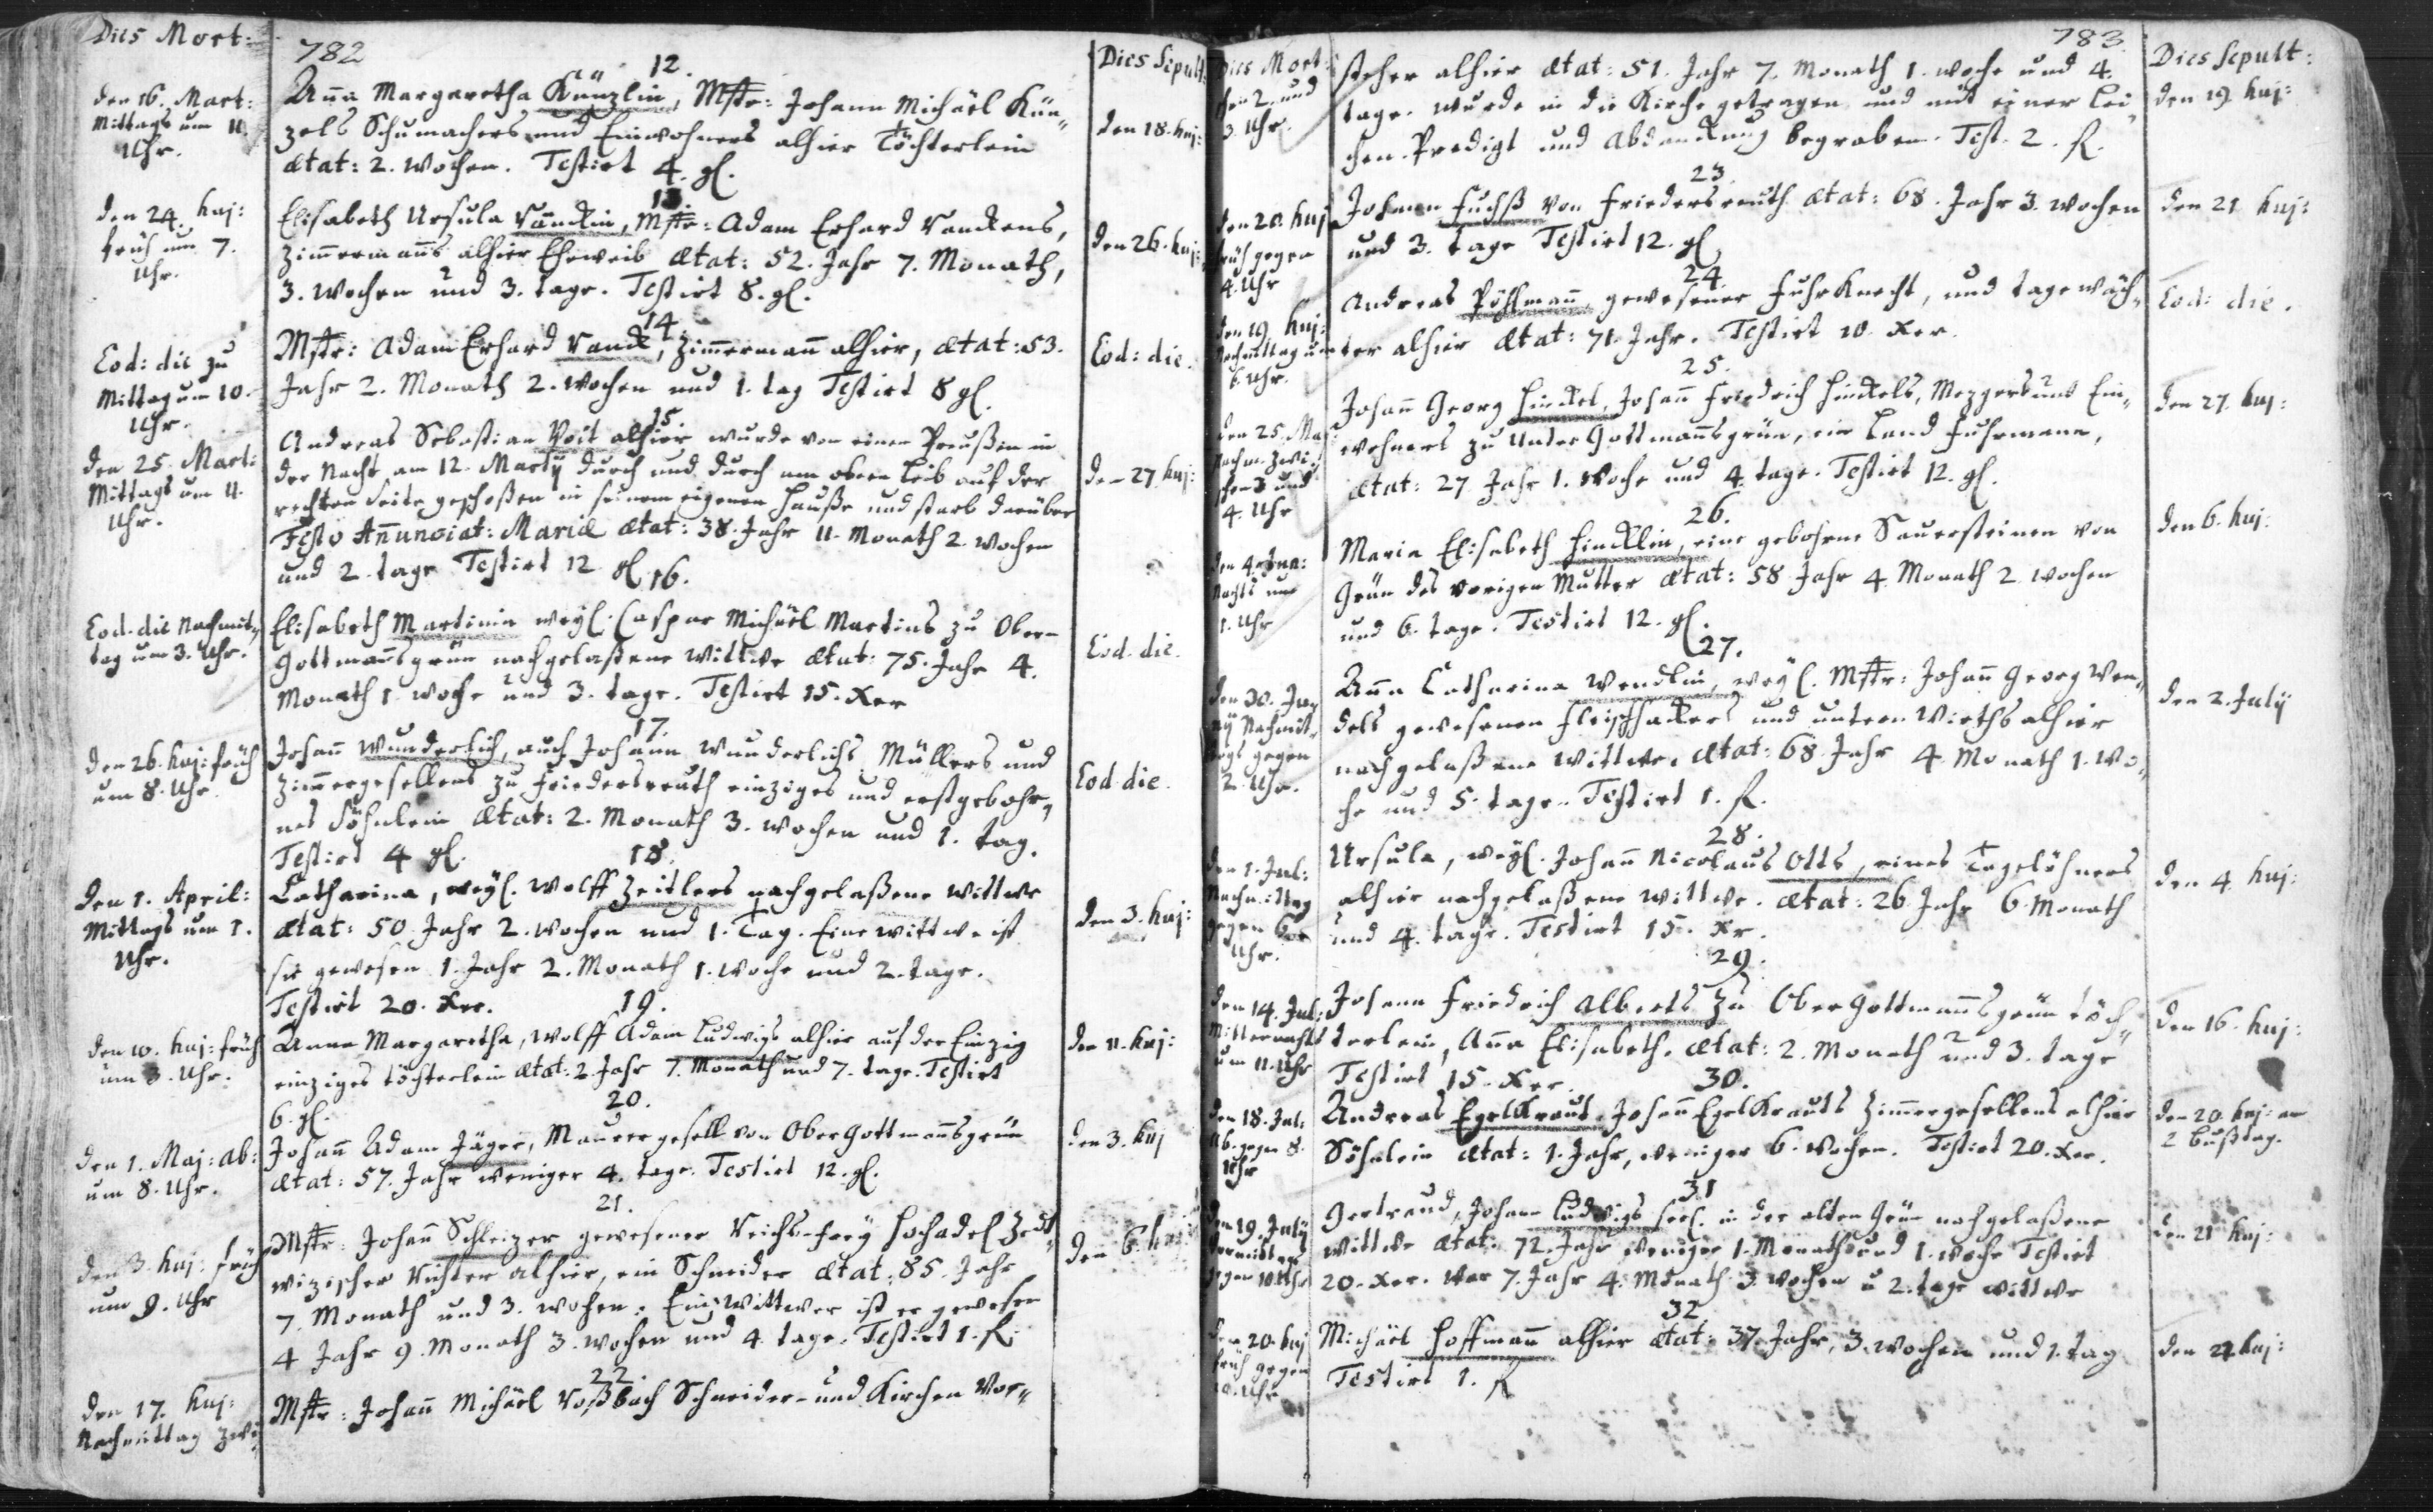 782
Dies Mort:
Dies Sepult:
12.
den 16. Mart:
Mittags um 11.
Uhr.
Anna Margaretha Künzlin, Mstr: Johann Michäel Kün„
zels Schumachers und Einwohners alhier Töchterlein
ætat: 2. Wochen. Testirt 4. gl.
den 18. huj:
13.
den 24. huj:
früh um 7.
Uhr.
Elisabeth Ursula Vandin, Mstr: Adam Erhard Vandens,
Zimmermanns alhier Eheweib ætat: 52. Jahr 7. Monath,
3. Wochen und 3. tage. Testirt 8. gl.
den 26. huj:
14.
Eod: die zu
Mittag um 10.
Uhr.
Mstr: Adam Erhard Vand, Zimmermann alhier, ætat: 53.
Jahr 2. Monath 2. Wochen und 1. tag Testirt 8 gl.
Eod: die.
15.
den 25. Mart:
Mittags um 11.
Uhr.
Andreas Sebastian Voit alhier wurde von einen Preußen in
der Nacht am 12. Martÿ durch und durch am obern Leib auf der
rechten Seite geschoßen in seinem eigenen Hauße und starb darüber
Festo Annunciat: Mariæ ætat: 38. Jahr 11. Monath 2. Wochen
und 2. tage Testirt 12. gl
den 27. huj:
16.
Eod. die Nachmit„
tag um 3. Uhr.
Elisabeth Martinin weyl. Caspar Michäel Martins zu Ober-
Gottmannsgrün nachgelaßene Wittwe ætat: 75. Jahr 4.
Monath 1. Woche und 3. tage. Testirt 15. Xer
Eod. die.
17.
den 26. huj: früh
um 8. Uhr.
Johann Wunderlich, auch Johann Wunderlichs Müllers und
Zimmergesellens zu Friedersreuth einziges und erstgebohr„
nes Söhnlein ætat: 2. Monath 3. Wochen und 1. tag.
Testirt 4 gl.
Eod. die.
18.
den 1. April:
Mittags um 1.
Uhr.
Catharina, weyl. Wolff Zeitlers nachgelaßene Wittwe
ætat: 50 Jahr 2. Wochen und 1. Tag. Eine Wittwe ist
sie gewesen 1. Jahr 2. Monath 1. Woche und 2. tage.
Testirt 20. Xer.
den 3. huj:
19.
den 10. huj: früh
um 3. Uhr.
Anna Margaretha, Wolff Adam Ludwigs alhier auf der Einzig
einziges töchterlein ætat: 2. Jahr 7. Monath und 7. tage. Testirt
6. gl.
den 11. huj:
20.
den 1. Maj: ab:
um 8. Uhr.
Johann Adam Jäger, Maurergesell von Ober Gottmannsgrün
ætat: 57. Jahr weniger 4. tage. Testirt 12. gl.
den 3. huj
21.
den 3. huj: früh
um 9. Uhr
Mstr: Johann Schleizer gewesener Reichs-frey Hochadel Zedt„
wizischer Richter alhier, ein Schneider ætat: 85. Jahr
7. Monath und 3. Wochen. Ein Wittwer ist er gewesen
4 Jahr 9. Monath 3. Wochen und 4. tage. Testirt 1. fl.
den 6. huj:
22.
den 17. huj:
Nachmittag zwi„
Mstr: Johann Michäel Voßbach Schneider- und Kirchen Vor„
783.
Dies Mort:
Dies Sepult:
schen 2. und
3. Uhr.
steher alhier ætat: 51. Jahr 7. Monath 1. Woche und 4.
tage. Wurde in die Kirche getragen und mit einer Lei„
chen-Predigt und Abdankung begraben. Test. 2. fl.
den 19. huj:
23.
den 20. huj
früh gegen
4. Uhr
Johann Fuchß von Friedersreuth ætat: 68. Jahr 3. Wochen
und 3. tage Testirt 12. gl
den 21 huj:
24.
den 19. huj:
Nachmittag um
6. Uhr.
Andreas Pößmann, gewesener Fuhrknecht, und tagewäch„
ter alhier ætat: 71. Jahr. Testirt 10. Xer.
Eod: die.
25.
den 25. Maj
Nachm. zwi„
schen 3 und
4. Uhr
Johann Georg Hindel, Johann Friedrich Hindels, Mezgers und Ein„
wohners zu Unter Gottmannsgrün, ein Land Fuhrmann,
ætat: 27 Jahr 1. Woche und 4. tage. Testirt 12. gl.
den 27. huj:
26.
den 4. Jun:
Nachts um
1. Uhr
Maria Elisabeth Hindlin, eine gebohrne Sauersteinen von
Grün des vorigen Mutter ætat: 58 Jahr 4. Monath 2. Wochen
und 6. tage. Testirt 12. gl.
den 6. huj:
27.
den 30. Jun
ÿ Nachmit„
tags gegen
2. Uhr.
Anna Catharina Wendlin, weyl. Mstr: Johann Georg Wen„
dels gewesenen Fleischhackers und untern Wirths alhier
nachgelaßene Wittwe. ætat: 68. Jahr 4. Monath 1. Wo„
che und 5. tage. Testirt 1. fl.
den 2. Julÿ
28.
den 1. Jul:
Nachmittag
gegen 6
Uhr.
Ursula, weyl. Johann Nicolaus Otts, eines Tagelöhners
alhier nachgelaßene Wittwe. ætat: 26 Jahr 6. Monath
und 4. tage. Testirt 15. Xr.
den 4. huj:
29.
den 14. Jul:
Mitternachts
um 11. Uhr
Johann Friedrich Alberts zu Ober Gottmannsgrün töch„
terlein, Anna Elisabeth. ætat: 2. Monath und 3. tage
Testirt 15. Xer.
den 16. huj:
30.
den 18. Jul:
ab. gegen 8.
Uhr
Andreas Egelkraut, Johann Egelkrauts Zimmergesellens alhier
Söhnlein ætat: 1. Jahr, weniger 6. Wochen. Testirt 20. Xer.
den 20. huj: am
2 bußtag.
31
den 19. Julÿ
Vormittags
gegen 10 Uhr
Gertraud, Johann Ludwigs seel. in der alten Grün nachgelaßene
Wittwe ætat: 72. Jahr weniger 1. Monath und 1. Woche Testirt
20. Xer. War 7. Jahr 4. Monath 3. Wochen u 2. tage Wittwe
den 21 huj:
32
den 20. huj
früh gegen
10. Uhr
Michäel Hoffmann alhier ætat: 37. Jahr, 3. Wochen und 1. tag
Testirt 1. fl
den 21. huj: